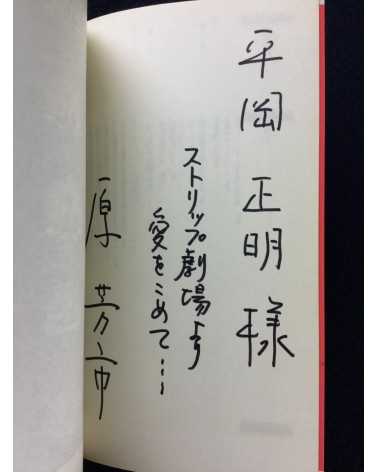 平岡正明様
ストリップ劇場より
愛をこめて…
原芳市